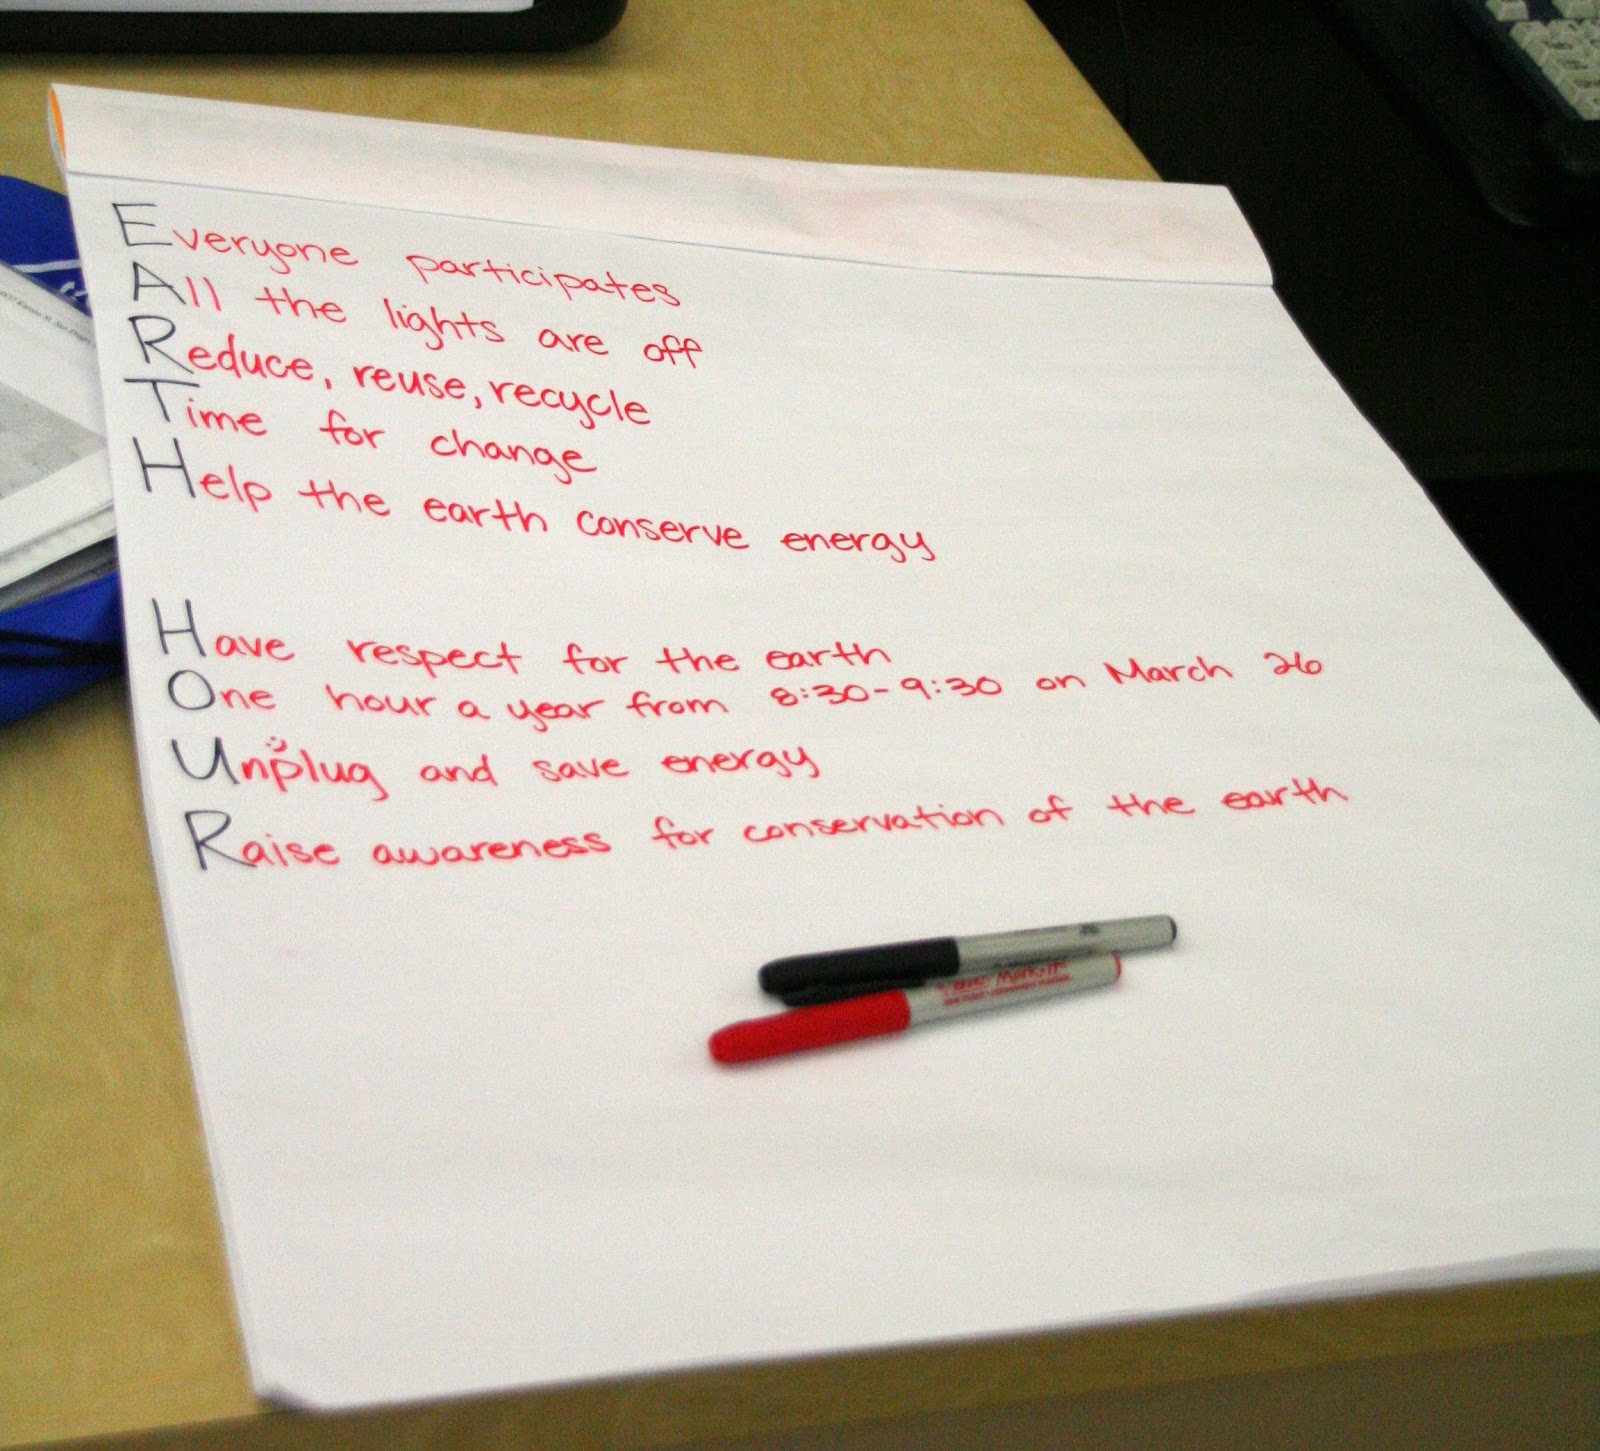 Everyone participates
All the lights are off
Reduce, reuse, recycle
Time for change
Help the earth conserve energy
Have respect for the earth
One hour a year from 8:30-9:30 on March 26
Unplug and save energy
Raise awareness for conservation of the earth